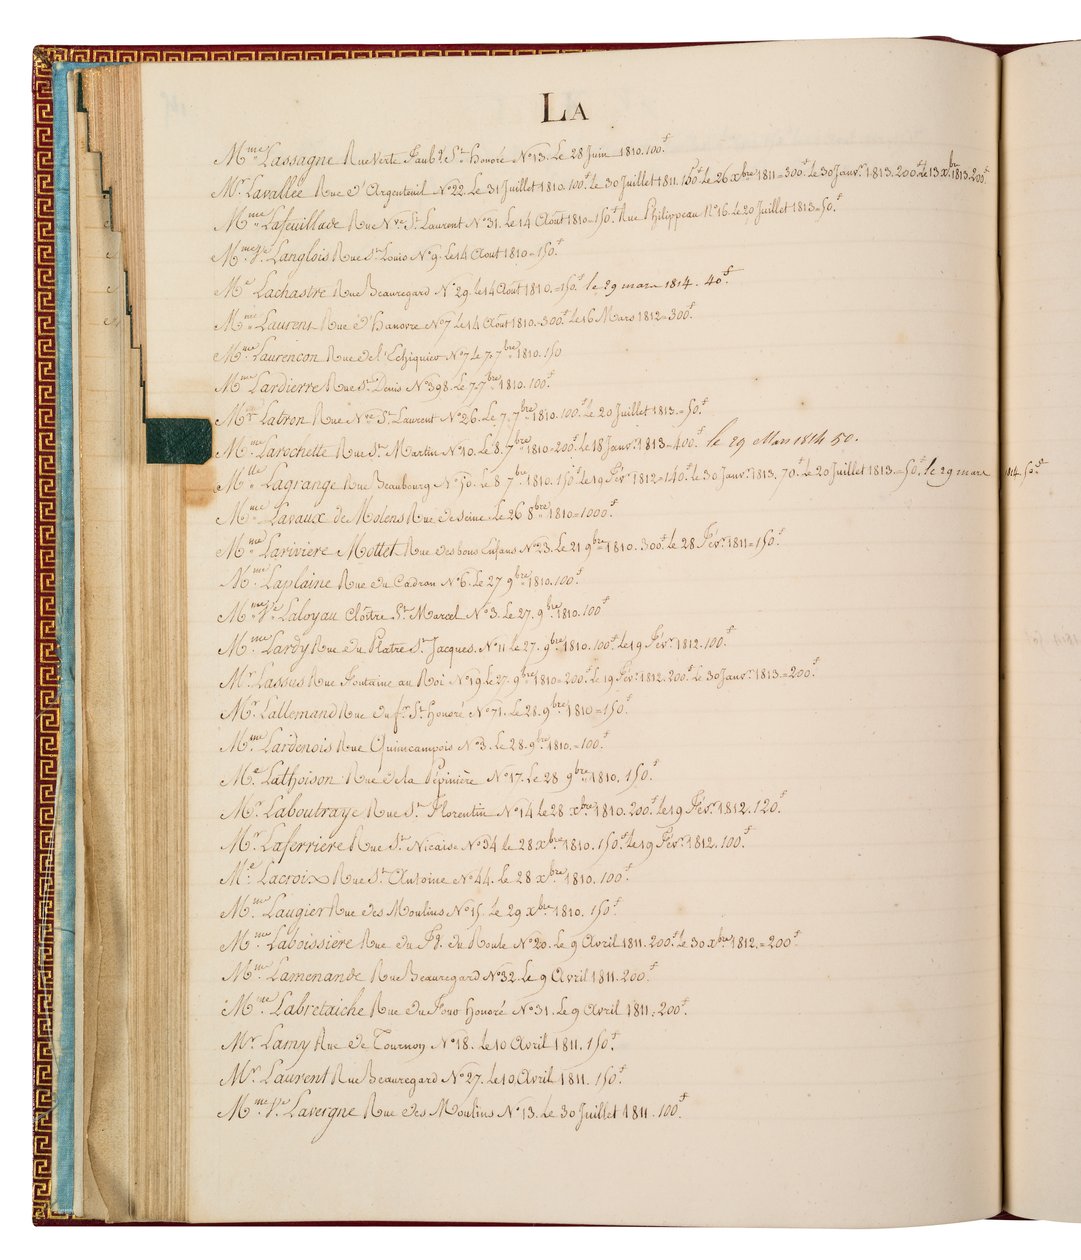 LA
Mme Lassagne Rue Verte Faubg St Honoré No 13. Le 28 Juin 1810. 100f
Mr Lavallée Rue d'Argenteuil No 22. Le 31 Juillet 1810. 100f Le 30 Juillet 1811. 150f Le 26 Xbre 1811 = 300f Le 30 Janvr 1813. 200f Le 13 Xbre 1813. 200f
Mme Lafeuillade Rue Nve St Laurent No 31. Le 14 Aout 1810 = 150f Rue Philippeau No 16. Le 20 Juillet 1813 = 50f.
Mme Ve Langlois Rue St Louis No 9. Le 14 Aout 1810 = 150f.
Me Lachastre Rue Beauregard No 29. le 14 Aout 1810. = 150f. le 29 mars 1814. 40f
Mme Laurent Rue d'Hanovre No 7 Le 14 Aout 1810. = 300f Le 16 Mars 1812 = 300f.
Mme Laurencon Rue de l'Echiquier No 7 Le 7. 7bre 1810. 150
Mme Lardierre Rue St Denis No 398. Le 7. 7bre 1810. 100f.
Latron Rue Nve St Laurent No 26. Le 7. 7bre 1810. 100f. Le 20 Juillet 1813. = 50f.
Mme Larochette Rue St Martin No 10. Le 8. 7bre 1810 = 200f. Le 18 Janvr 1813 = 400f. le 29 Mars 1814 50.
Mlle Lagrange Rue Beaubourg No 50. Le 8 7bre 1810. 150f Le 19 Févr 1812 = 140f. Le 30 Janvr 1813. 70f Le 20 Juillet 1813. = 50f. le 29 mars 1814. 50f
Mme Lavaux de Molens Rue de Seine Le 26 8bre 1810 = 1000f.
Mme Lariviere Mottet Rue des bons Enfans No 23. Le 21 9bre 1810. 300f. Le 28 Févr 1811 = 150f.
Mme Laplaine Rue du Cadran No 6. Le 27 9bre 1810. 100f.
Mme Ve Laloyau Cloître St Marcel No 3. Le 27. 9bre 1810. 100f
Mme Lardy Rue du Platre St Jacques. No 11 le 27. 9bre 1810. 100f Le 19 Févr 1812. 100f.
Mr Lassus Rue Fontaine au Roi No 19 Le 27. 9bre 1810 = 200f. Le 19 Févr 1812. 200f. Le 30 Janvr 1813. = 200f.
Mr Lallemand Rue du fg St Honoré No 71. Le 28. 9bre 1810 = 150f.
Mme Lardenois Rue Quincampois No 3. Le 28. 9bre 1810. = 100f.
Me Lathoison Rue de la Pépinière No 17. Le 28 9bre 1810. 150f.
Mr Laboutraye Rue St Florentin No 14 Le 28 Xbre 1810. 200f. Le 19 Févr 1812. 120f.
Mr Laferriere Rue St Nicaise No 34 le 28 Xbre 1810. 150f Le 19 Févr 1812. 100f.
Me Lacroix Rue St Antoine No 44. Le 28 Xbre 1810. 100f.
Mme Laugier Rue des Moulins No 15. Le 29 Xbre 1810. 150f.
Mme Laboissière Rue du Fg. du Roule No 20. Le 9 Avril 1811. 200f. Le 30 Xbre 1812. = 200f.
Mme Lamenande Rue Beauregard No 32. Le 9 Avril 1811. 200f
Mme Labretaiche Rue du Honoré No 31. Le 9 Avril 1811. 200f.
Mr Lamy Rue de Tournon No 18. Le 10 Avril 1811. 150f.
Mr Laurent Rue Beauregard No 27. Le 10 Avril 1811. 150f.
Mme Ve Lavergne Rue des Moulins No 13. Le 30 Juillet 1811. 100f.